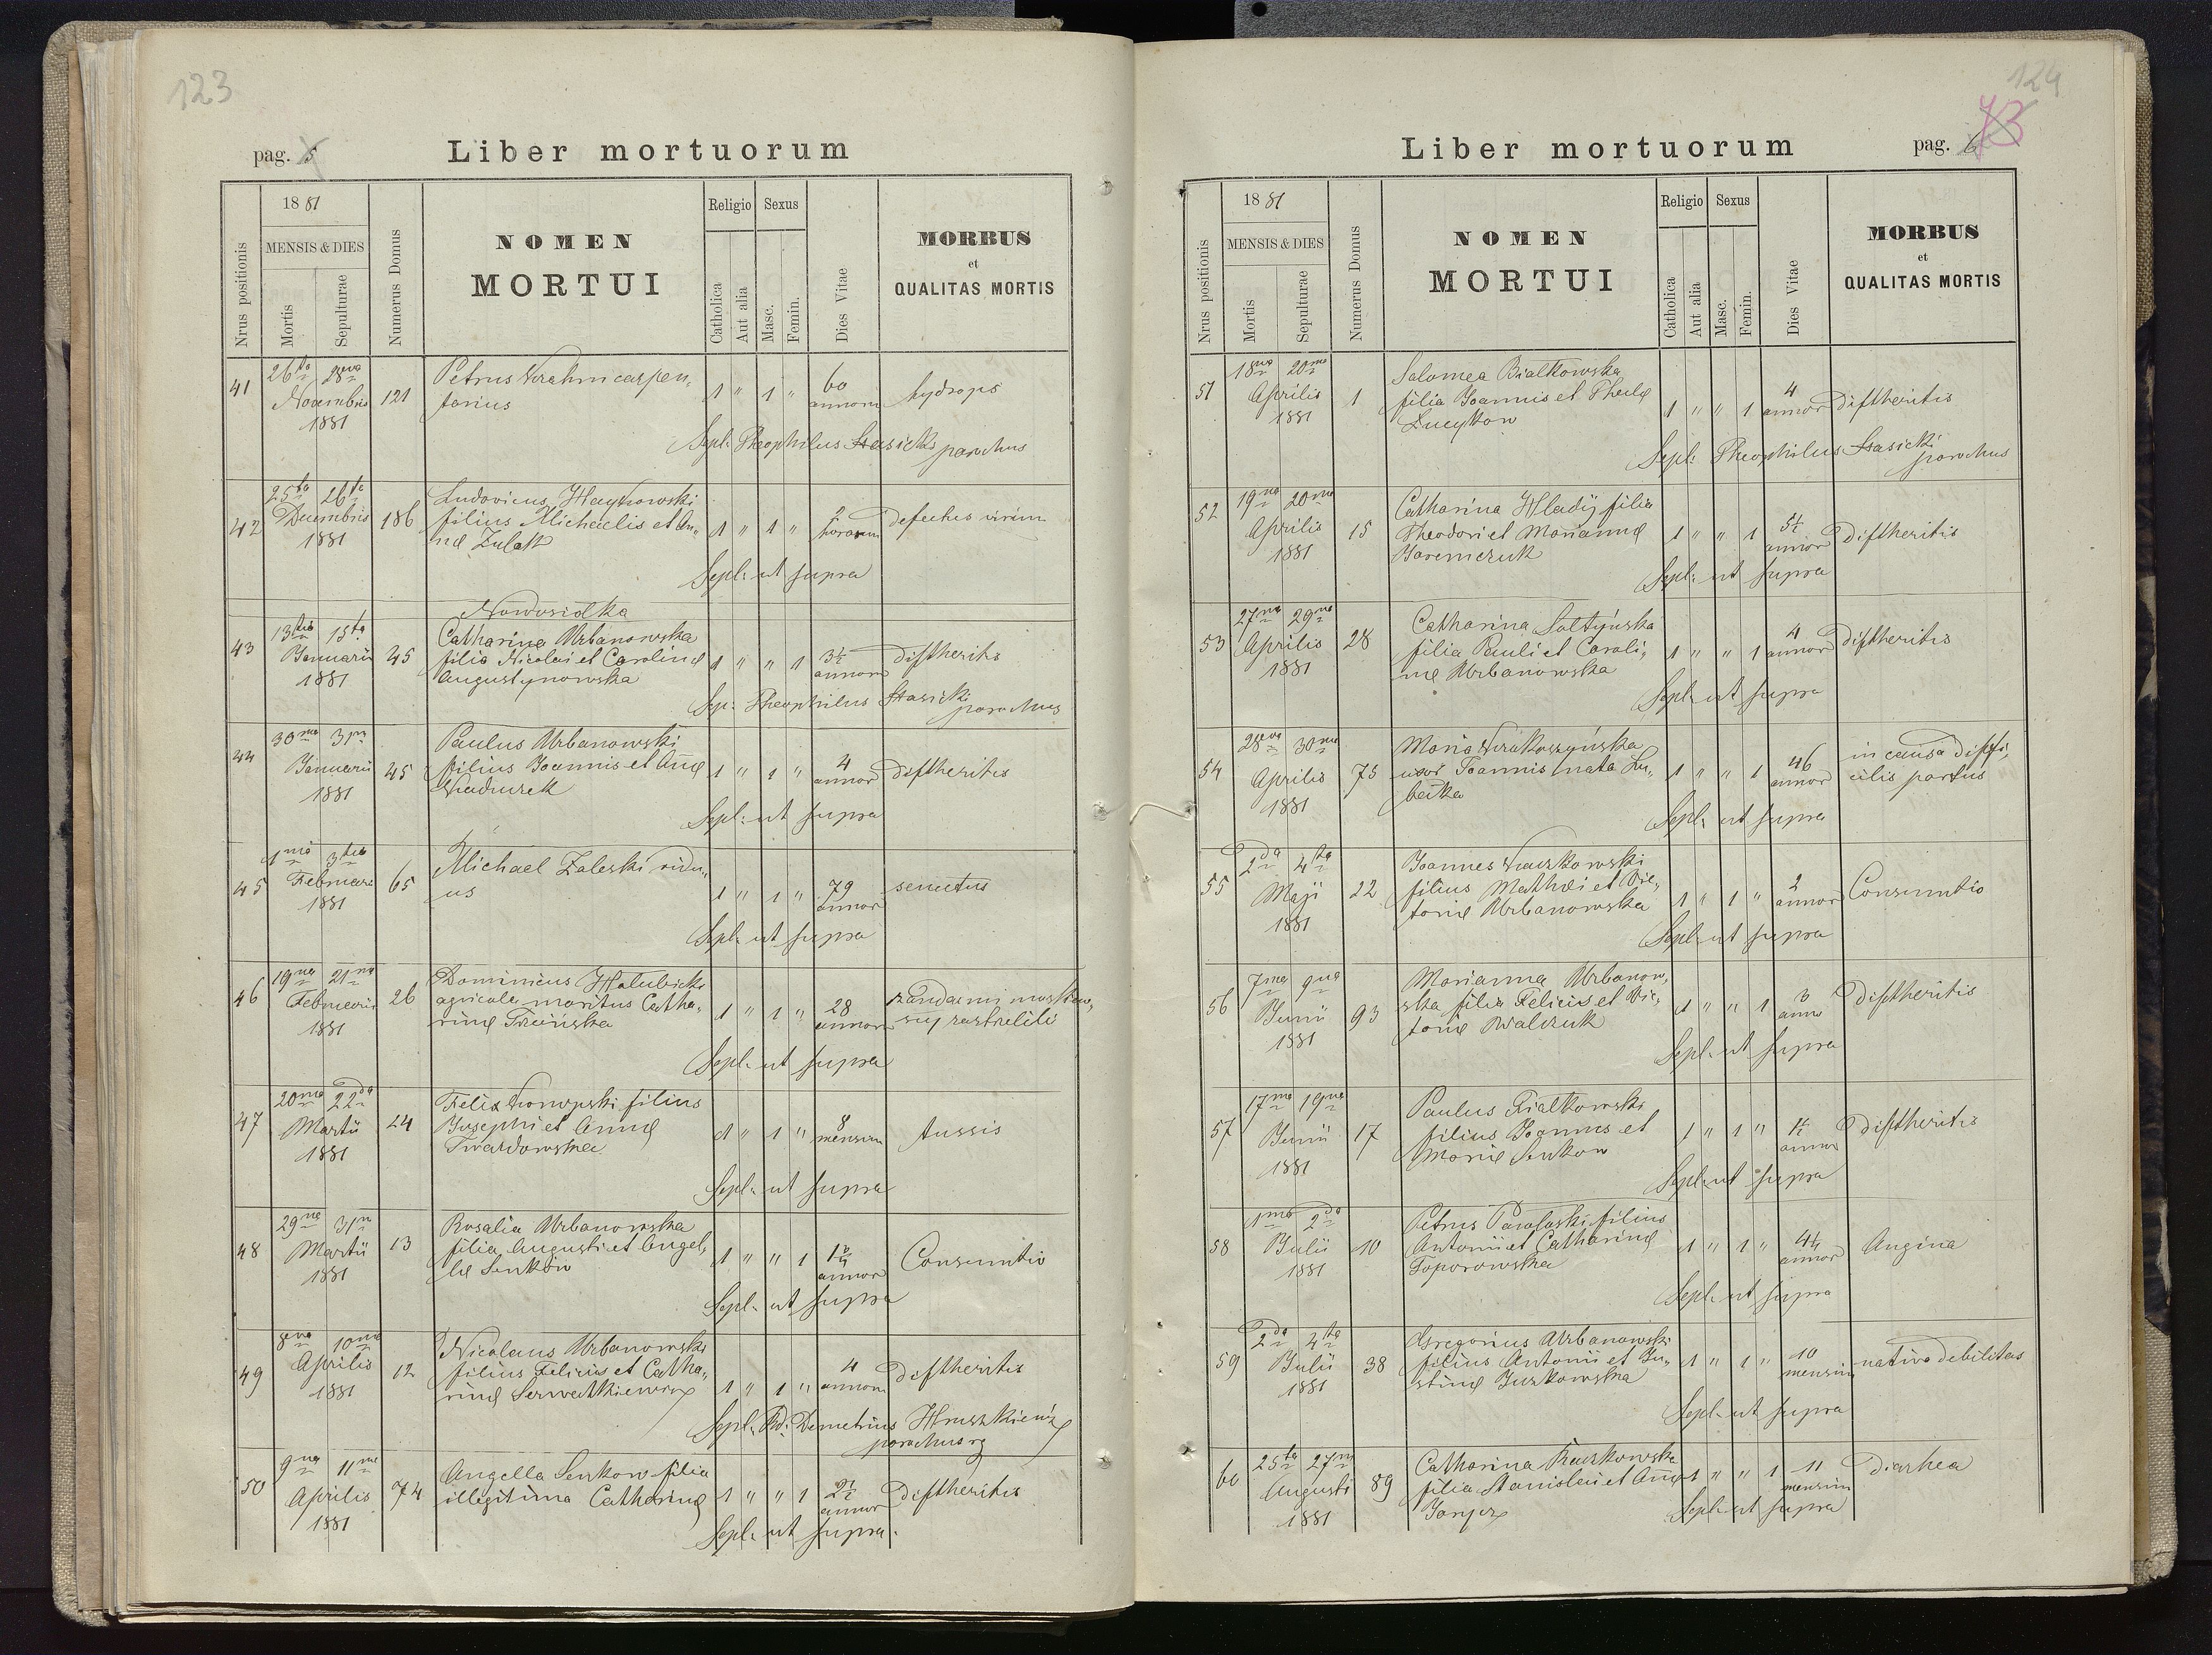 123
pag. 5
Liber mortuorum
Nrus positionis
1881
MENSIS & DIES
Mortis
Sepulturae
Numerus Domus
NOMEN
MORTUI
Religio
Catholica
Aut alia
Sexus
Masc.
Femin.
Dies Vitae
MORBUS
et
QUALITAS MORTIS
41 26ta 28va Novembris 1881 121
Petrus carpen„
tarius
1 " 1 " 60 annorum hydrops
Sepl: Theophilus Stasicki parochus
42 25ta 26ta Decembris 1881 186
Ludovicus Haykowski
filius Michaelis et An„
næ Zulak
1 " 1 " 2 horarum defectus virium
Sepl: ut supra
Nowosiolka
43 13tia 15ta Januarii 1881 45
Catharina Urbanowska
filia Nicolai et Carolinæ
Augustynowska
1 " " 1 3½ annorum diftheritis
Sep: Theophilus Stasicki parochus
44 30ma 31ma Januarii 1881 45
Paulus Urbanowski
filius Joannis et Annæ
1 " 1 " 4 annor diftheritis
Sepl: ut supra
45 1ma 3tia Februarii 1881 65
Michael Zaleski vidu„
us
1 " 1 " 79 annor senectus
Sepl: ut supra
46 19na 21ma Februarii 1881 26
Dominicus Holubicki
agricola maritus Catha„
rinæ
1 " 1 " 28 annorum żandarmi moskiew„
scy zastrelili
Sepl: ut supra
47 20ma 22da Martii 1881 24
Felix filius
Josephi et Annæ
Twardowska
1 " 1 " 8 mensium tussis
Sepl: ut supra
48 29na 31ma Martii 1881 13
Rosalia Urbanowska
filia Augusti et Angel„
læ Senkow
1 " " 1 annor Consumtio
Sepl: ut supra
49 8va 10ma Aprilis 1881 12
Nicolaus Urbanowski
filius Felicis et Catha„
rinæ Serwatkiewicz
1 " 1 " 4 annorum diftheritis
Sepl: Rd: Demetrius Hruszkiewicz
parochus rg
50 9na 11ma Aprilis 1881 74
Angella Senkow filia
illegitima Catharinæ
1 " " 1 2½ annor diftheritis
Sepl: ut supra.
124
73
pag. 6
Liber mortuorum
Nrus positionis
1881
MENSIS & DIES
Mortis
Sepulturae
Numerus Domus
NOMEN
MORTUI
Religio
Catholica
Aut alia
Sexus
Masc.
Femin.
Dies Vitae
MORBUS
et
QUALITAS MORTIS
51 18va 20ma Aprilis 1881 1
Salomea Bialkowska
filia Joannis et Theclæ
Lucykow
1 " " 1 4 annor diftheritis
Sepl: Theophilus Stasicki parochus
52 19na 20ma Aprilis 1881 15
Catharina Hladÿ filia
Theodori et Mariannæ
Jaremczuk
1 " " 1 5½ annor diftheritis
Sepl: ut supra
53 27ma 29na Aprilis 1881 28
Catharina Soltyńska
filia Pauli et Caroli„
næ Urbanowska
1 " " 1 4 annor diftheritis
Sepl: ut supra
54 28va 30ma Aprilis 1881 75
Maria
uxor Joannis nata
1 " " 1 46 annor in causa diffi„
cilis partus
Sepl: ut supra
55 2da 4ta Maji 1881 22
Joannes
filius Mathæi et Vic„
toriæ Urbanowska
1 " 1 " 2 annor Consumtio
Sepl: ut supra
56 7ma 9na Junii 1881 93
Marianna Urbanow„
ska filia Felicis et Vic„
toriæ Walczuk
1 " " 1 3 anno diftheritis
Sepl: ut supra
57 17ma 19na Junii 1881 17
Paulus Bialkowski
filius Joannis et
Mariæ Senkow
1 " 1 " 1½ annor diftheritis
Sepl: ut supra
58 1ma 2da Julii 1881 10
Petrus filius
Antonii et Catharinæ
Toporowska
1 " 1 " 4¼ annor Angina
Sepl: ut supra
59 2da 4ta Julii 1881 38
Gregorius Urbanowski
filius Antonii et Ju„
stinæ Juzkowska
1 " 1 " 10 mensium nativa debilitas
Sepl: ut supra
60 25ta 27ma Augusti 1881 89
Catharina
filia Stanislai et Annæ
1 " " 1 11 mensium diarhea
Sepl: ut supra